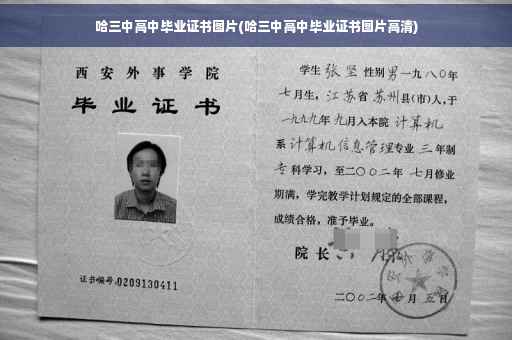 哈三中高中毕业证书图片(哈三中高中毕业证书图片高清)
西安外事学院
毕业证书
证书编号:0209130411
学生 张坚 性别男一九八〇年
七月生，江苏省苏州县(市)人，于
一九九九年九月入本院 计算机
系计算机信息管理专业 三 年制
专科学习，至二〇〇二年 七月修业
期满，学完教学计划规定的全部课程，
成绩合格，准予毕业。
院长
二〇〇二年 月 五日